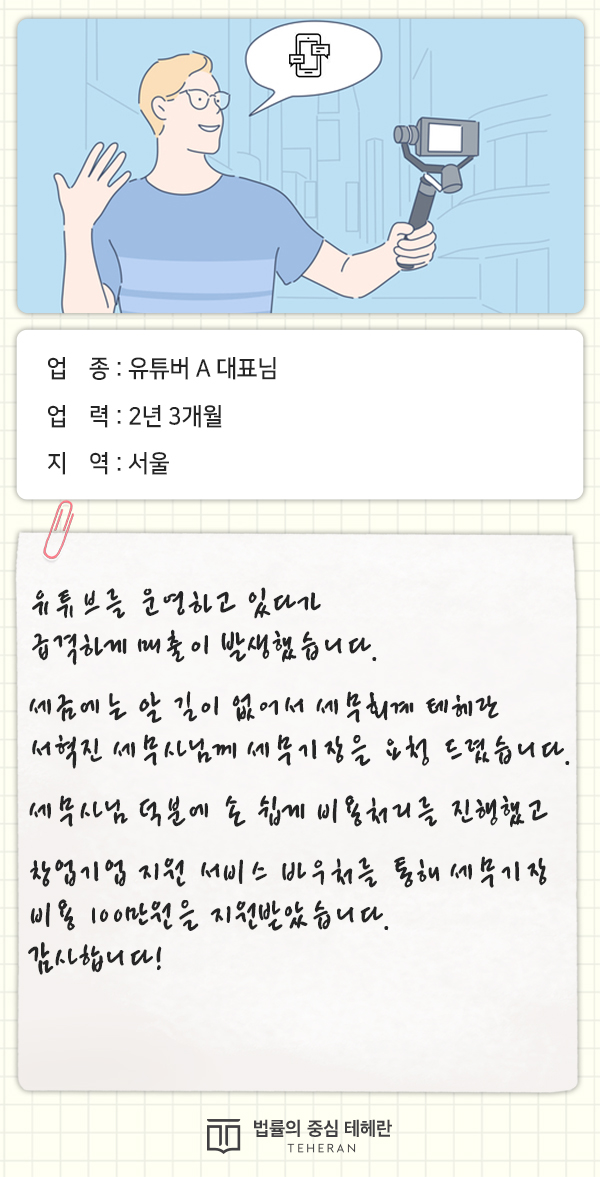 업 종 : 유튜버 A 대표님
업 력 : 2년 3개월
지 역 : 서울
유튜브를 운영하고 있다가
급격하게 매출이 발생했습니다.
세금에는 알 길이 없어서 세무회계 테헤란
서혁진 세무사님께 세무기장을 요청 드렸습니다.
세무사님 덕분에 손 쉽게 비용처리를 진행했고
창업기업 지원 서비스 바우처를 통해 세무기장
비용 100만원을 지원받았습니다.
감사합니다!
법률의 중심 테헤란
TEHERAN